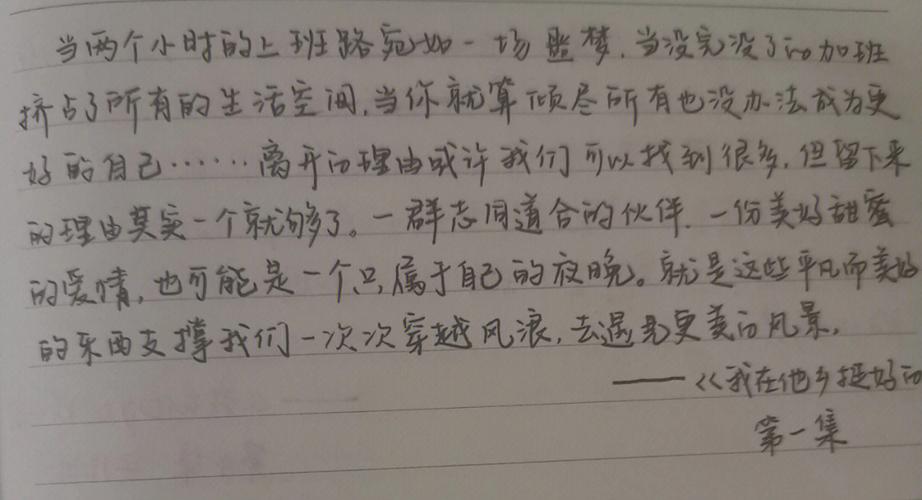 当两个小时的上班路宛如一场噩梦，当没完没了的加班
挤占了所有的生活空间，当你就算倾尽所有也没办法成为更
好的自己……离开的理由或许我们可以找到很多，但留下来
的理由其实一个就够了。一群志同道合的伙伴，一份美好甜蜜
的爱情，也可能是一个只属于自己的夜晚。就是这些平凡而美好
的东西支撑我们一次次穿越风浪，去遇见更美的风景。
——《我在他乡挺好的
第一集